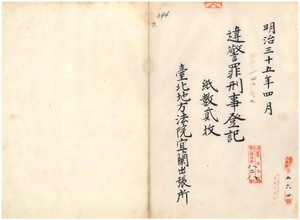 明治三十五年四月
違警罪刑事登記
紙數貳枚
臺北地方法院宜蘭出張所